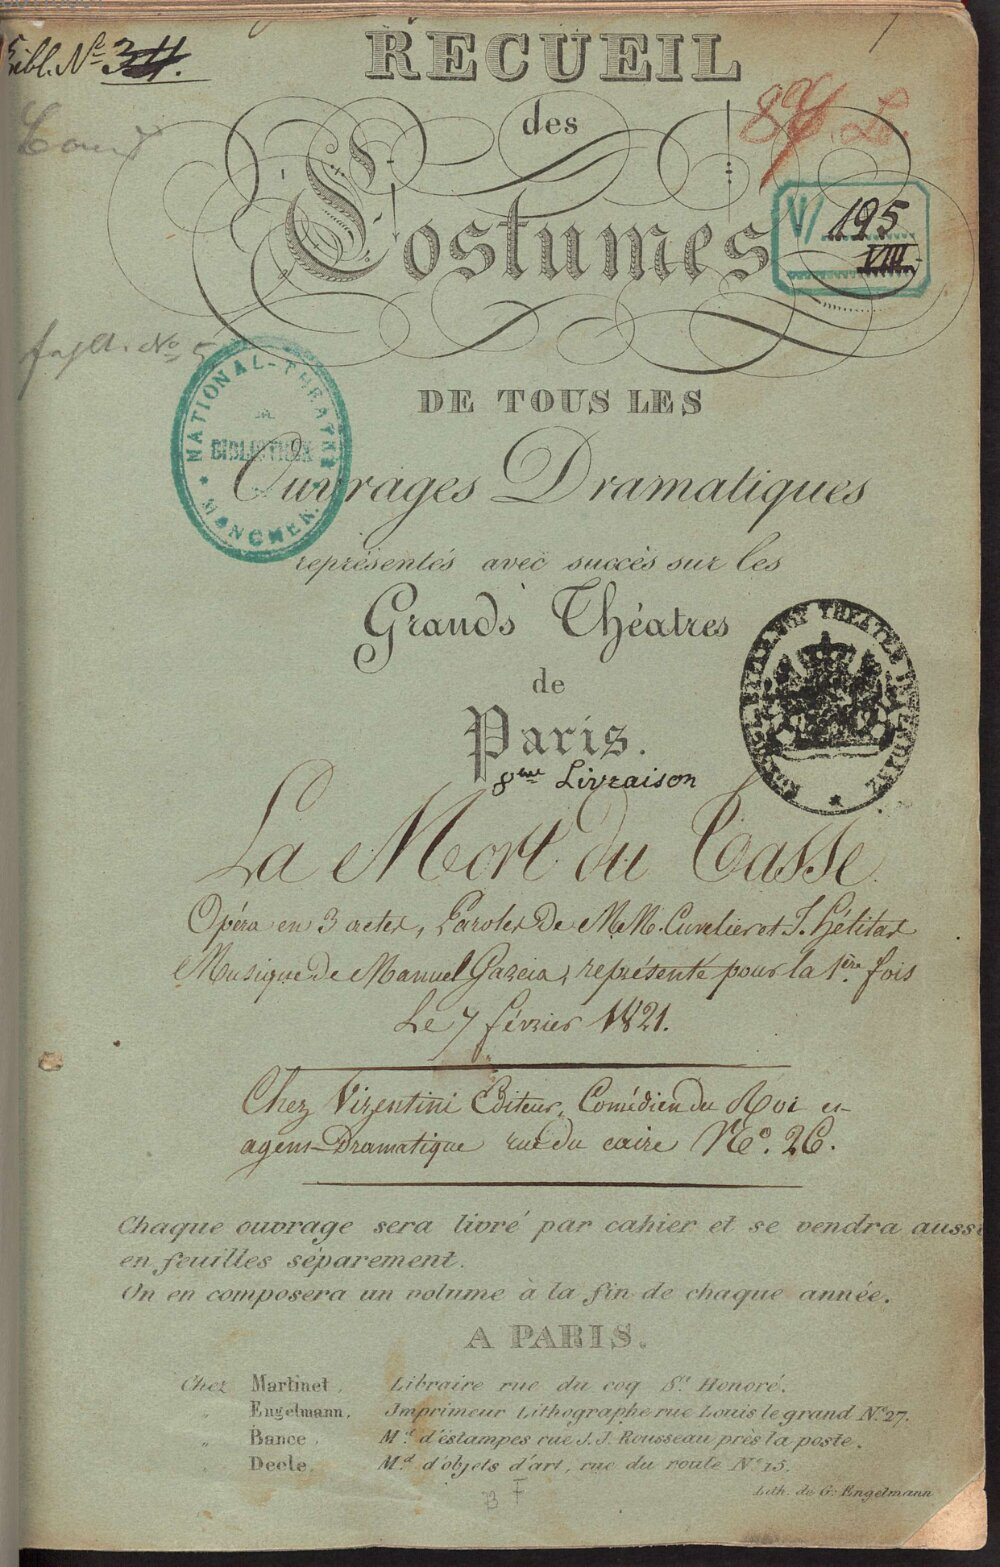 Bibl. Nº 34.
RECUEIL
des
87. L.
Costumes
V/ 195
VIII
DE TOUS LES
NATIONAL-THEATER
BIBLIOTHEK
MÜNCHEN.
Ouvrages Dramatiques
représentés avec succès sur les
Grands Théatres
de
Paris.
8me Livraison
La Mort du Tasse
Opéra en 3 actes, Paroles de M.M. Cuvelier et J. Hélitas
Musique de Manuel Garcia, représenté pour la 1ère fois
Le 7 février 1821.
Chez Vizentini Editeur, Comédien du Roi et
agent Dramatique rue du caire Nº. 26.
Chaque ouvrage sera livré par cahier et se vendra aussi
en feuilles séparement.
On en composera un volume à la fin de chaque année.
A PARIS.
Chez Martinet, Libraire rue du coq St Honoré.
" Engelmann, Imprimeur Lithographe rue Louis le grand Nº 27.
" Bance, Md d'éstampes rue J. J. Rousseau près la poste.
" Decle, Md d'objets d'art, rue du roule Nº 15.
Lith. de G. Engelmann